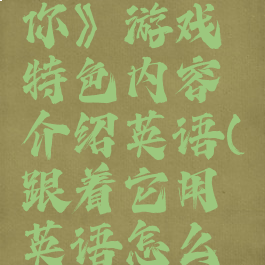 你》游戏
特色内容
介绍英语(
跟着它用
英语怎么